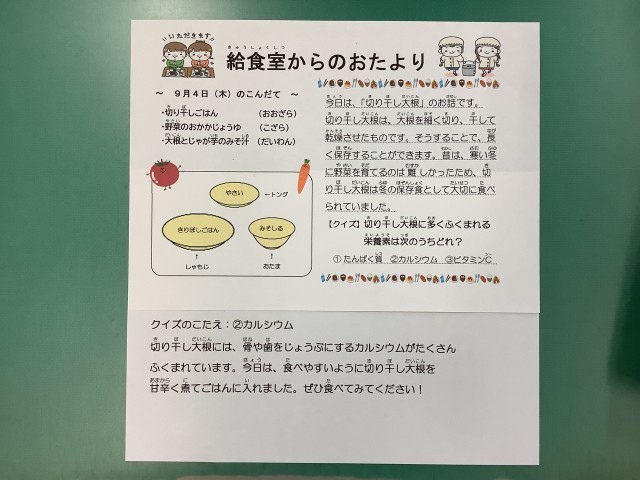 いただきます
給食室からのおたより
きゅうしょくしつ
～ 9月4日（木）のこんだて ～
・切り干しごはん （おおざら）
・野菜のおかかじょうゆ （こざら）
・大根とじゃが芋のみそ汁 （だいわん）
やさい
←トング
きりぼしごはん
みそしる
↑
しゃもじ
↑
おたま
今日は、「切り干し大根」のお話です。
切り干し大根は、大根を細く切り、干して
乾燥させたものです。そうすることで、長
く保存することができます。昔は、寒い冬
に野菜を育てるのは難しかったため、切
り干し大根は冬の保存食として大切に食べ
られていました。
【クイズ】切り干し大根に多くふくまれる
栄養素は次のうちどれ？
①たんぱく質 ②カルシウム ③ビタミンC
クイズのこたえ：②カルシウム
切り干し大根には、骨や歯をじょうぶにするカルシウムがたくさん
ふくまれています。今日は、食べやすいように切り干し大根を
甘辛く煮てごはんに入れました。ぜひ食べてみてください！